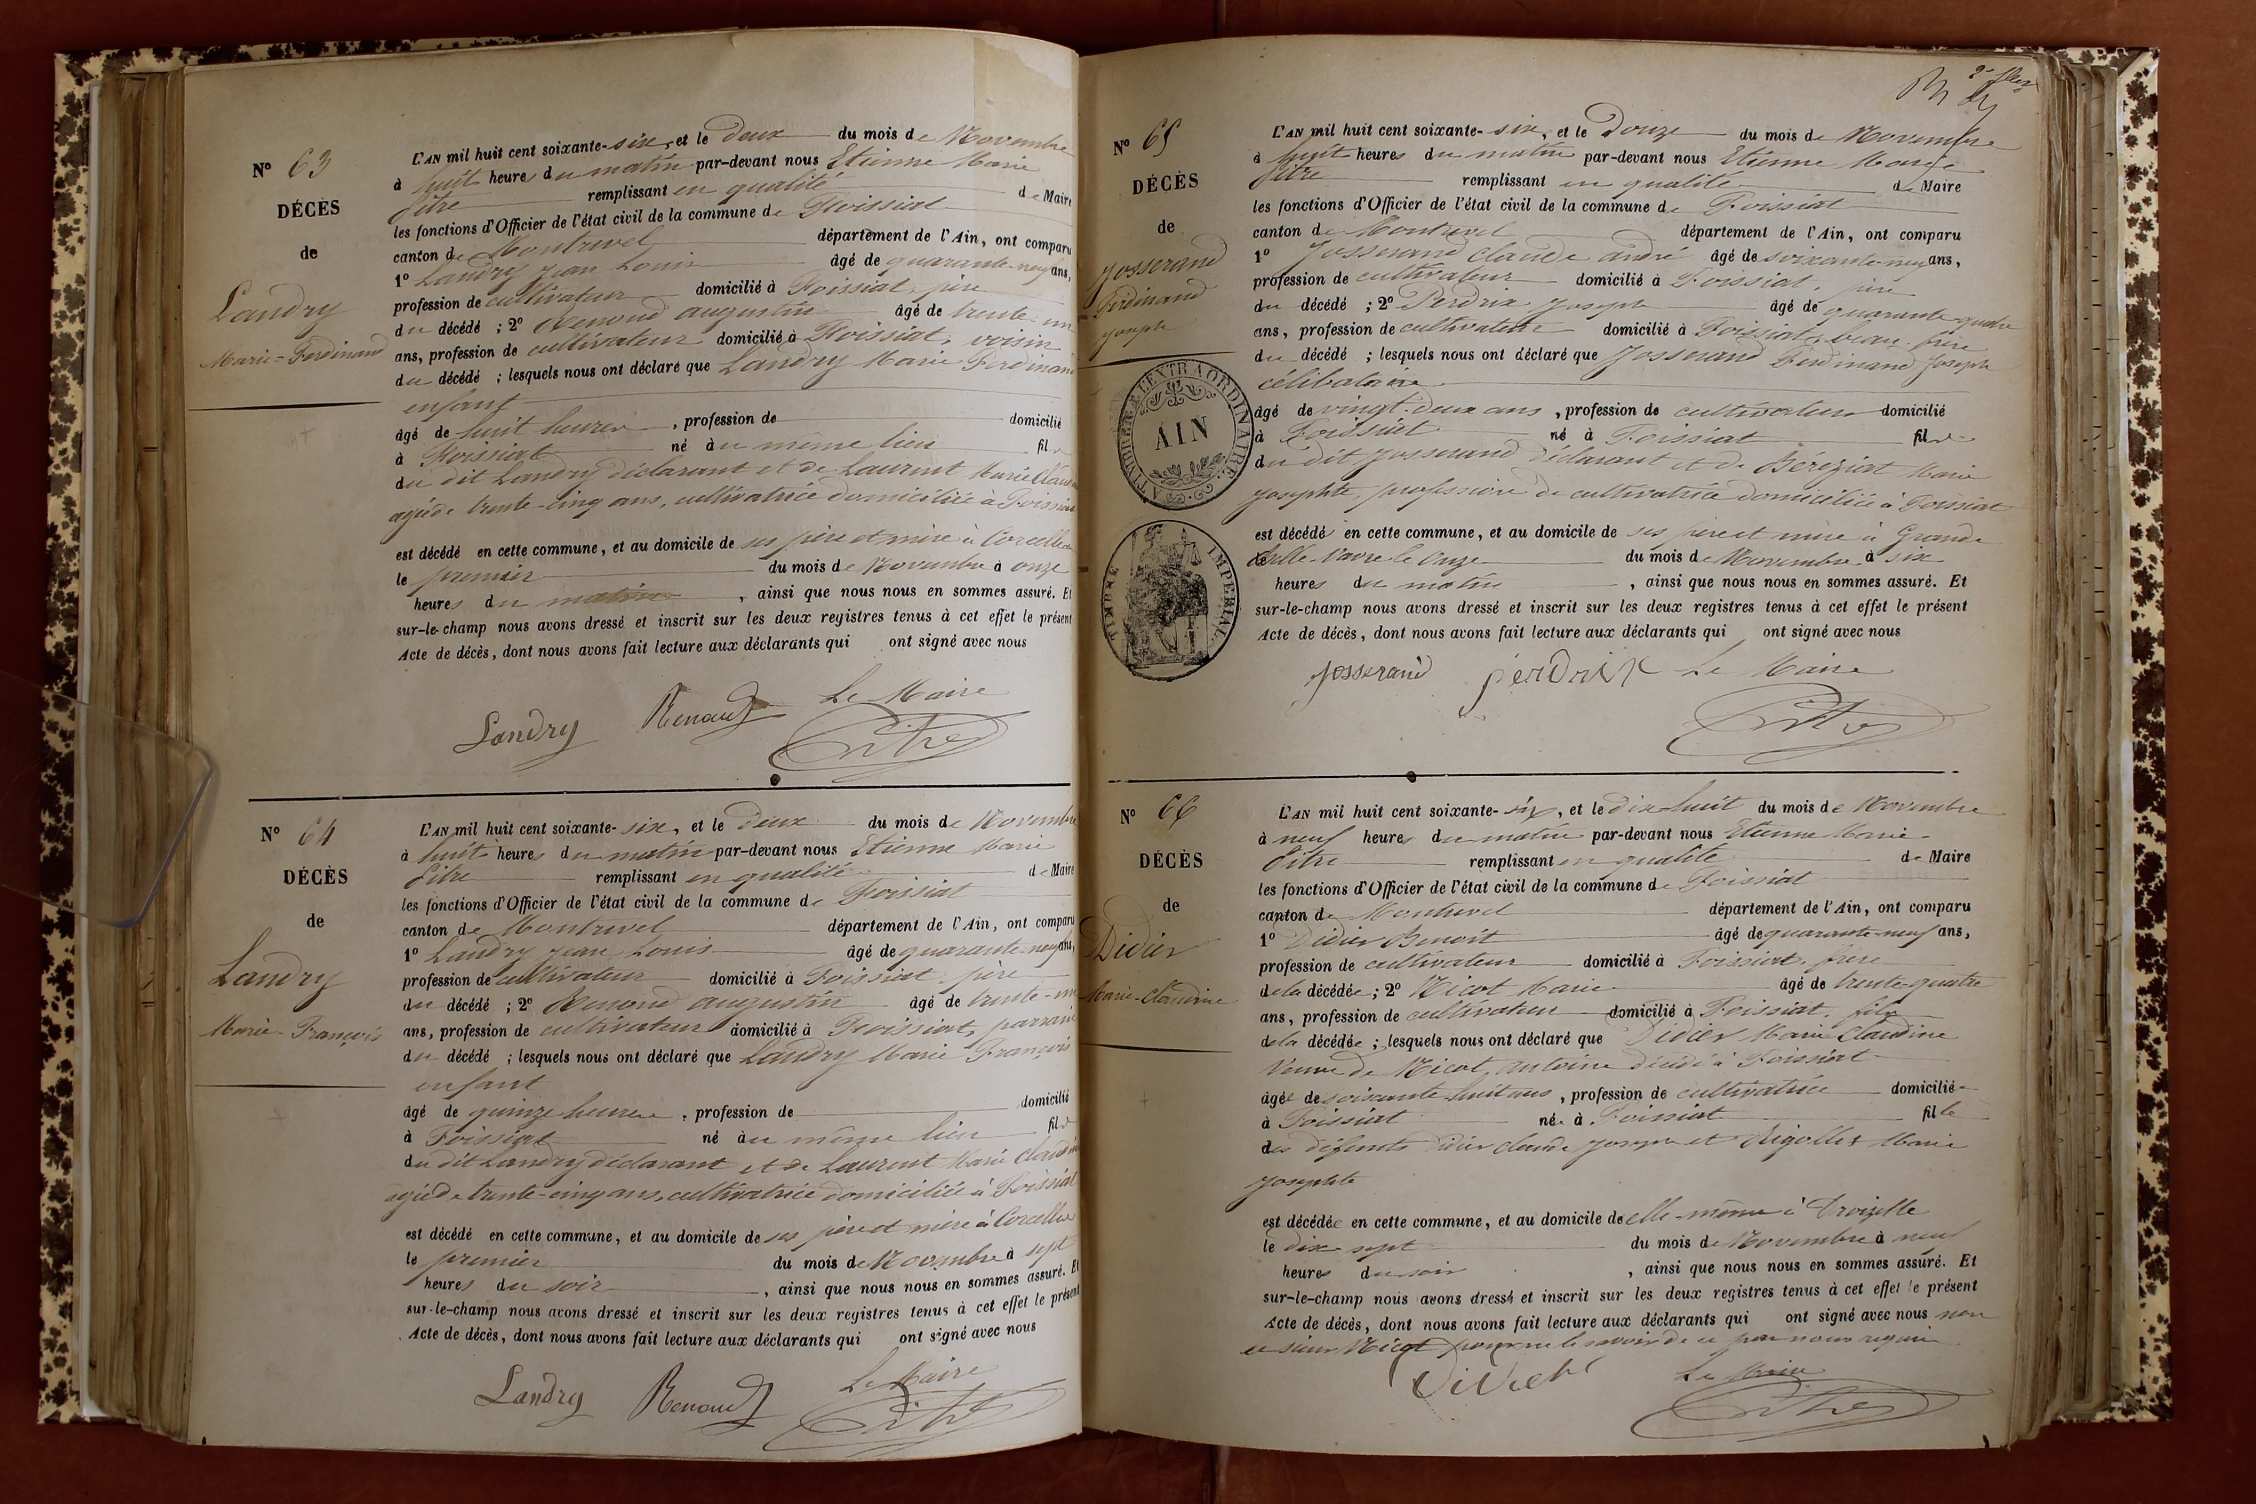 N° 63
DÉCÈS
de
Landry
Marie-Ferdinand
L'AN mil huit cent soixante-six, et le Deux du mois de Novembre
à huit heures du matin par-devant nous Etienne Marie
Pitre remplissant en qualité de Maire
les fonctions d'Officier de l'état civil de la commune de Foissiat
canton de Montrevel département de l'Ain, ont comparu
1° Landry Jean Louis âgé de quarante-neuf ans,
profession de cultivateur domicilié à Foissiat, père
du décédé ; 2° Renoud augustin âgé de trente-un
ans, profession de cultivateur domicilié à Foissiat, voisin
du décédé ; lesquels nous ont déclaré que Landry Marie Ferdinand
enfant
âgé de huit heures, profession de domicilié
à Foissiat né au même lieu fils
du dit Landry déclarant et de Laurent Marie
agée de trente-cinq ans, cultivatrice domiciliée à Foissiat
est décédé en cette commune, et au domicile de ses père et mère à Corcelles
le premier du mois de Novembre à onze
heures du matin, ainsi que nous nous en sommes assuré. Et
sur-le-champ nous avons dressé et inscrit sur les deux registres tenus à cet effet le présent
Acte de décès, dont nous avons fait lecture aux déclarants qui ont signé avec nous
Le Maire
Landry Renoud Pitre
N° 64
DÉCÈS
de
Landry
Marie-François
L'AN mil huit cent soixante-six, et le Deux du mois de Novembre
à huit heures du matin par-devant nous Etienne Marie
Pitre remplissant en qualité de Maire
les fonctions d'Officier de l'état civil de la commune de Foissiat
canton de Montrevel département de l'Ain, ont comparu
1° Landry Jean Louis âgé de quarante-neuf ans,
profession de cultivateur domicilié à Foissiat, père
du décédé ; 2° Renoud augustin âgé de trente-un
ans, profession de cultivateur domicilié à Foissiat, parrain
du décédé ; lesquels nous ont déclaré que Landry Marie François
enfant
âgé de quinze heures, profession de domicilié
à Foissiat né au même lieu fils
du dit Landry déclarant et de Laurent Marie
agée de trente-cinq ans, cultivatrice domiciliée à Foissiat
est décédé en cette commune, et au domicile de ses père et mère à Corcelles
le premier du mois de Novembre à sept
heures du soir, ainsi que nous nous en sommes assuré. Et
sur-le-champ nous avons dressé et inscrit sur les deux registres tenus à cet effet le présent
Acte de décès, dont nous avons fait lecture aux déclarants qui ont signé avec nous
Le Maire
Landry Renoud Pitre
N° 65
DÉCÈS
de
Josserand
Ferdinand
Joseph
TIMBRE EXTRAORDINAIRE
AIN
TIMBRE IMPERIAL
L'AN mil huit cent soixante-six, et le Douze du mois de Novembre
à huit heures du matin par-devant nous Etienne Marie
Pitre remplissant en qualité de Maire
les fonctions d'Officier de l'état civil de la commune de Foissiat
canton de Montrevel département de l'Ain, ont comparu
1° Josserand Claude andré âgé de soixante-neuf ans,
profession de cultivateur domicilié à Foissiat, père
du décédé ; 2° Perdrix Joseph âgé de quarante-quatre
ans, profession de cultivateur domicilié à Foissiat, beau-frère
du décédé ; lesquels nous ont déclaré que Josserand Ferdinand Joseph
célibataire
âgé de vingt-deux ans, profession de cultivateur domicilié
à Foissiat né à Foissiat fils
du dit Josserand déclarant et de Bérégiat Marie
Josephte, profession de cultivatrice domiciliée à Foissiat
est décédé en cette commune, et au domicile de ses père et mère à Grande
Vavre le onze du mois de Novembre à six
heures du matin, ainsi que nous nous en sommes assuré. Et
sur-le-champ nous avons dressé et inscrit sur les deux registres tenus à cet effet le présent
Acte de décès, dont nous avons fait lecture aux déclarants qui ont signé avec nous
Josserand perdrix Le Maire
Pitre
N° 66
DÉCÈS
de
Didier
Marie-Claudine
L'AN mil huit cent soixante-six, et le dix-huit du mois de Novembre
à neuf heures du matin par-devant nous Etienne Marie
Pitre remplissant en qualité de Maire
les fonctions d'Officier de l'état civil de la commune de Foissiat
canton de Montrevel département de l'Ain, ont comparu
1° Didier Benoît âgé de quarante-neuf ans,
profession de cultivateur domicilié à Foissiat, frère
de la décédée ; 2° Nicot Marie âgé de trente-quatre
ans, profession de cultivateur domicilié à Foissiat, fils
de la décédée ; lesquels nous ont déclaré que Didier Marie Claudine
Veuve de Nicot antoine décédé à Foissiat
âgée de soixante-huit ans, profession de cultivatrice domiciliée
à Foissiat née à Foissiat fille
des défunts Didier Claude Joseph et Rigollet Marie
Josephte
est décédée en cette commune, et au domicile de elle-même à Croizelle
le dix-sept du mois de Novembre à neuf
heures du soir, ainsi que nous nous en sommes assuré. Et
sur-le-champ nous avons dressé et inscrit sur les deux registres tenus à cet effet le présent
Acte de décès, dont nous avons fait lecture aux déclarants qui ont signé avec nous non
le sieur Nicot pour ne le savoir de ce par nous requis
Le Maire
Pitre